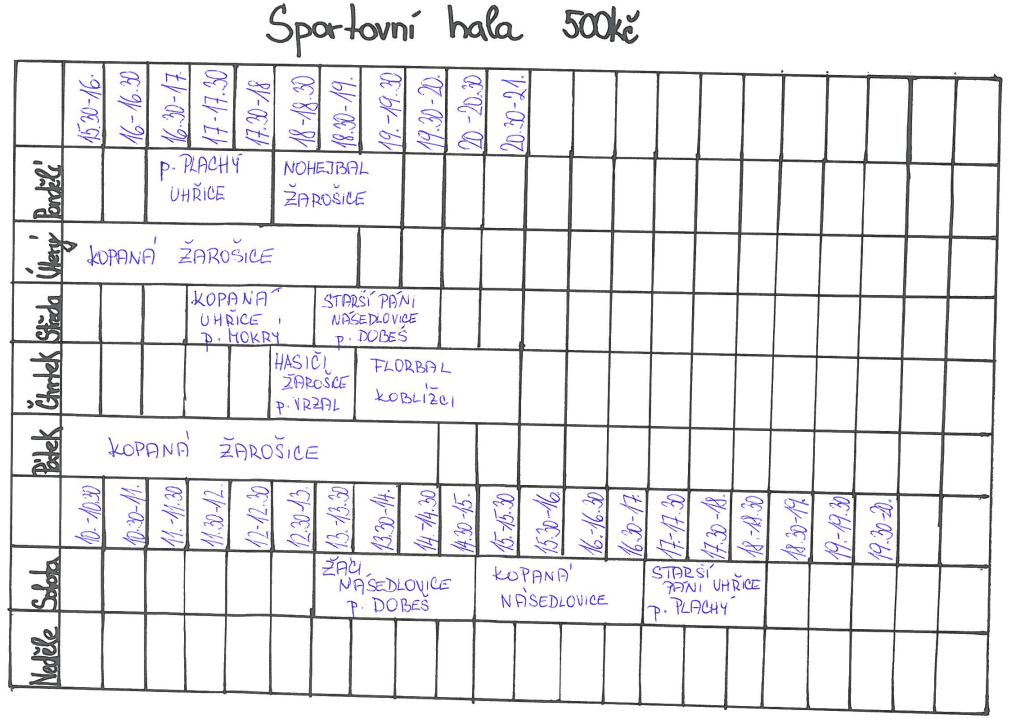 Sportovní hala 500kč
15.30-16. 16-16.30 16.30-17. 17-17.30 17.30-18 18-18.30 18.30-19. 19.-19.30 19.30-20. 20-20.30 20.30-21.
Pondělí
p. PLACHÝ
UHŘICE
NOHEJBAL
ŽAROŠICE
Úterý
KOPANÁ ŽAROŠICE
Středa
KOPANÁ
UHŘICE
p. MOKRÝ
STARŠÍ PÁNI
NÁSEDLOVICE
p. DOBEŠ
Čtvrtek
HASIČI
ŽAROŠCE
p. VRZAL
FLORBAL
KOBLÍŽCI
Pátek
KOPANÁ ŽAROŠICE
10.-10.30 10.30-11. 11.-11.30 11.30-12. 12-12.30 12.30-13. 13.-13.30 13.30-14. 14.-14.30 14.30-15. 15.-15.30 15.30-16. 16.-16.30 16.30-17. 17-17.30 17.30-18. 18.-18.30 18.30-19. 19.-19.30 19.30-20.
Sobota
ŽÁCI
NÁSEDLOVICE
p. DOBEŠ
KOPANÁ
NÁSEDLOVICE
STARŠÍ
PÁNI UHŘICE
p. PLACHÝ
Neděle